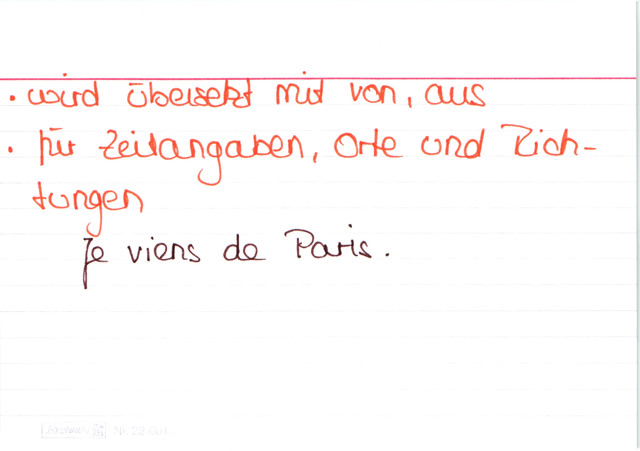 • wird übersetzt mit von, aus
• für Zeitangaben, Orte und Rich-
tungen
Je viens de Paris.